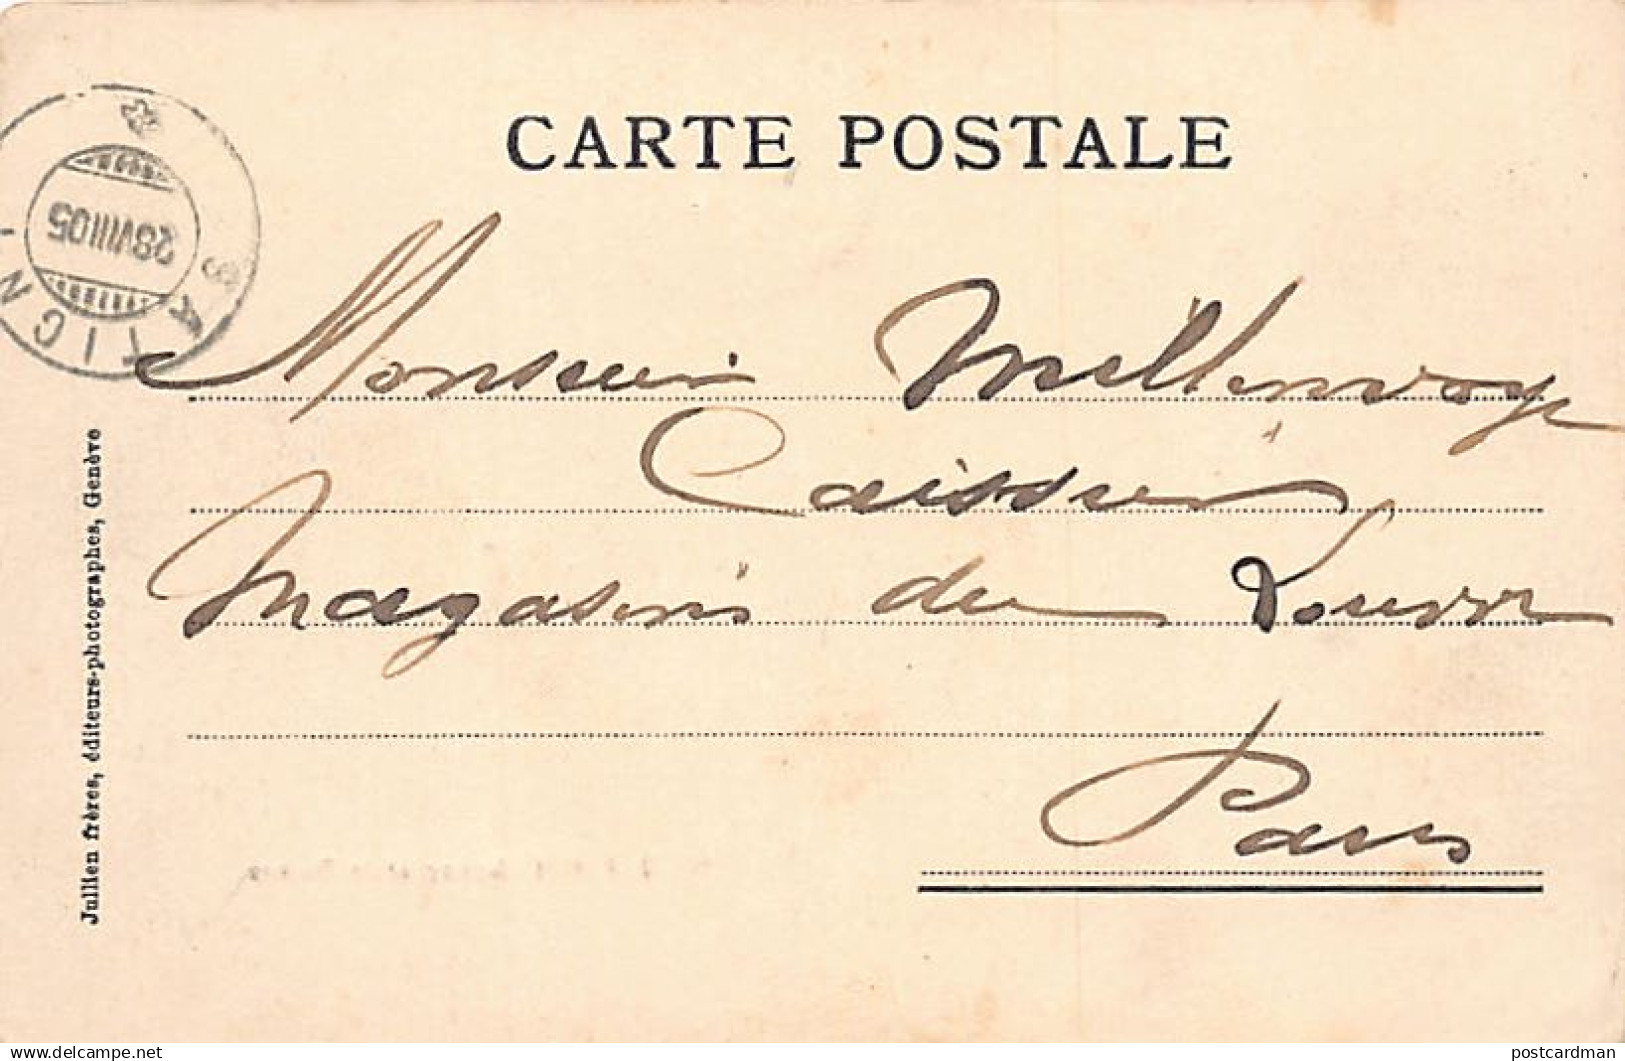 CARTE POSTALE
28 VIII 05
SATIGN
Monsieur Millenvoye
Caissier
Magasins du Louvre
Paris
Jullien frères, éditeurs-photographes, Genève
postcardman